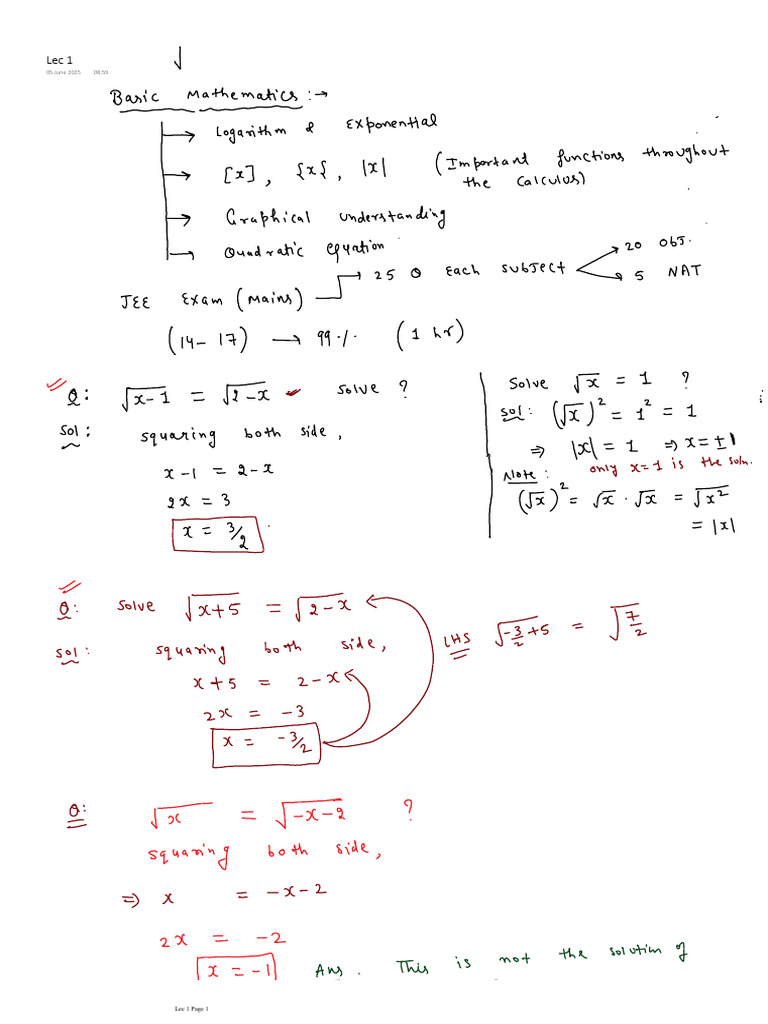 Lec 1
05 June 2025 08:59
Basic Mathematics :→
→ Logarithm & Exponential
→ [x], {x}, |x| (Important functions throughout the Calculus)
→ Graphical understanding
→ Quadratic equation
JEE Exam (Mains) → 25 Q each subject → 20 OBJ.
→ 5 NAT
(14-17) → 99 % (1 hr)
Q: √(x-1) = √(2-x) solve ?
Sol: squaring both side,
x-1 = 2-x
2x = 3
x = 3/2
Solve √x = 1 ?
Sol: (√x)² = 1² = 1
⇒ |x| = 1 ⇒ x = ±1
only x=1 is the soln.
Note:
(√x)² = √x · √x = √x²
= |x|
Q: Solve √(x+5) = √(2-x)
Sol: squaring both side,
x+5 = 2-x
2x = -3
x = -3/2
LHS √(-3/2+5) = √(7/2)
Q: √x = √(-x-2) ?
squaring both side,
⇒ x = -x-2
2x = -2
x = -1 Ans. This is not the solution of
Lec 1 Page 1